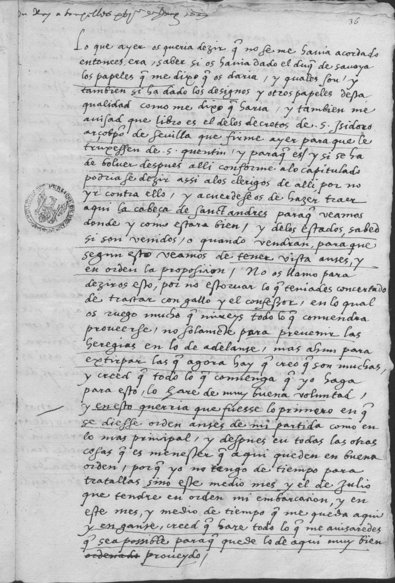 36
Lo que ayer os queria dezir q̃ no se me havia acordado
entonces, era, saber si os havia dado el duq̃ de savoya
los papeles q̃ me dixo q̃ os daria, y quales son, y
tambien si ha dado los designos y otros papeles dessa
qualidad como me dixo q̃ haria, y tambien me
avisad que libro es el delos decretos de S. Isidoro
arçobpõ de sevilla que firme ayer para que le
truxessen de S. quentin, y paraq̃ es, y si se ha
de bolver despues alli conforme alo capitulado
podriase dezir assi alos clerigos de alli, por no
yr contra ello, y acuerdeseos de hazer traer
aqui la cabeça de sanct andres paraq̃ veamos
donde y como estara bien, y delos estados, sabed
si son venidos, o quando vendran, para que
segun esto veamos de tener vista anses, y
en orden la proposicion, No os llamo para
deziros esto, por no estorvar lo q̃ teniades concertado
de trattar con gallo y el confessor, en lo qual
os ruego mucho q̃ mireys todo lo q̃ convendra
proveerse, no solamẽte para prevenir las
heregias en lo de adelante, mas aun para
extirpar las q̃ agora hay q̃ creo q̃ son muchas,
y creed q̃ todo lo q̃ convenga q̃ yo haga
para esto, lo hare de muy buena voluntad,
y en esto querria que fuesse lo primero en q̃
se diesse orden anses de mi partida como en
lo mas principal, y despues en todas las otras
cosas q̃ es menester q̃ aqui queden en buena
orden, porq̃ yo no tengo de tiempo para
tratallas sino este medio mes, y el de Julio
que tendre en orden mi embarcacion, y en
este mes, y medio de tiempo q̃ me queda aqui
y en ganse, creed q̃ hare todo lo q̃ me avisaredes
q̃ sea possible paraq̃ quede lo de aqui muy bien
ordenado proveydo,